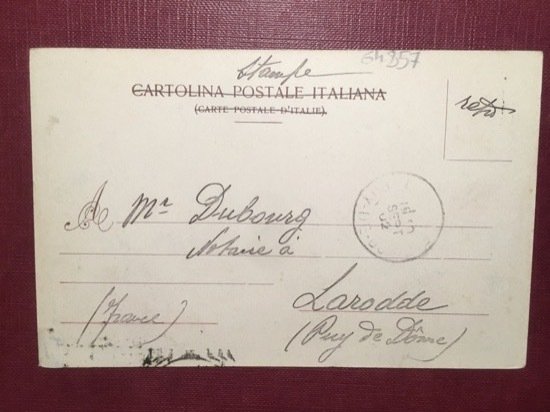 64857
Stampe
CARTOLINA POSTALE ITALIANA
(CARTE POSTALE D'ITALIE).
A Mr Dubourg
Notaire à
Larodde
(France)
(Puy de Dôme)
SEPT
02